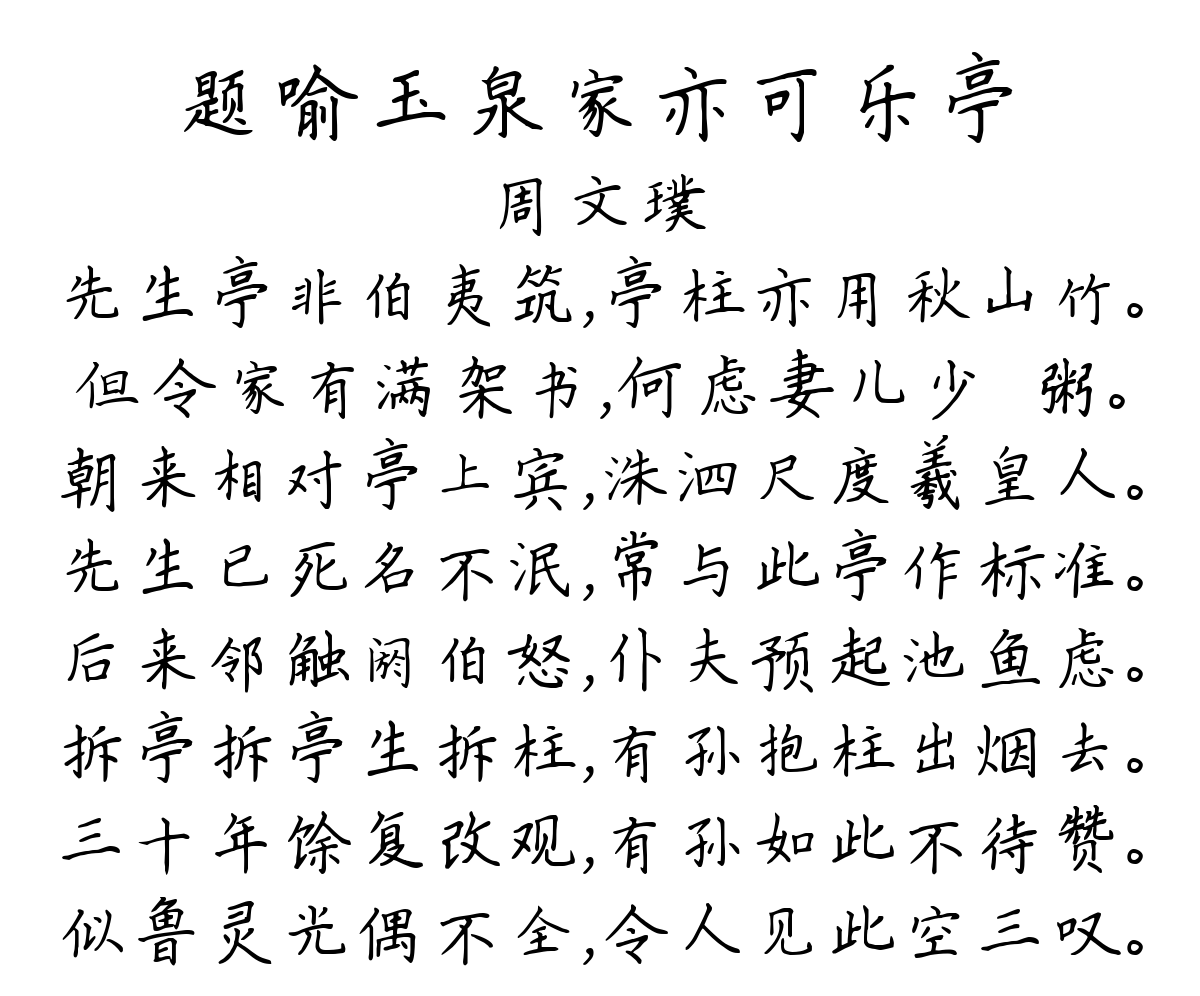 题喻玉泉家亦可乐亭
周文璞
先生亭非伯夷筑,亭柱亦用秋山竹。
但令家有满架书,何虑妻儿少 粥。
朝来相对亭上宾,洙泗尺度羲皇人。
先生已死名不泯,常与此亭作标准。
后来邻触阏伯怒,仆夫预起池鱼虑。
拆亭拆亭生拆柱,有孙抱柱出烟去。
三十年馀复改观,有孙如此不待赞。
似鲁灵光偶不全,令人见此空三叹。